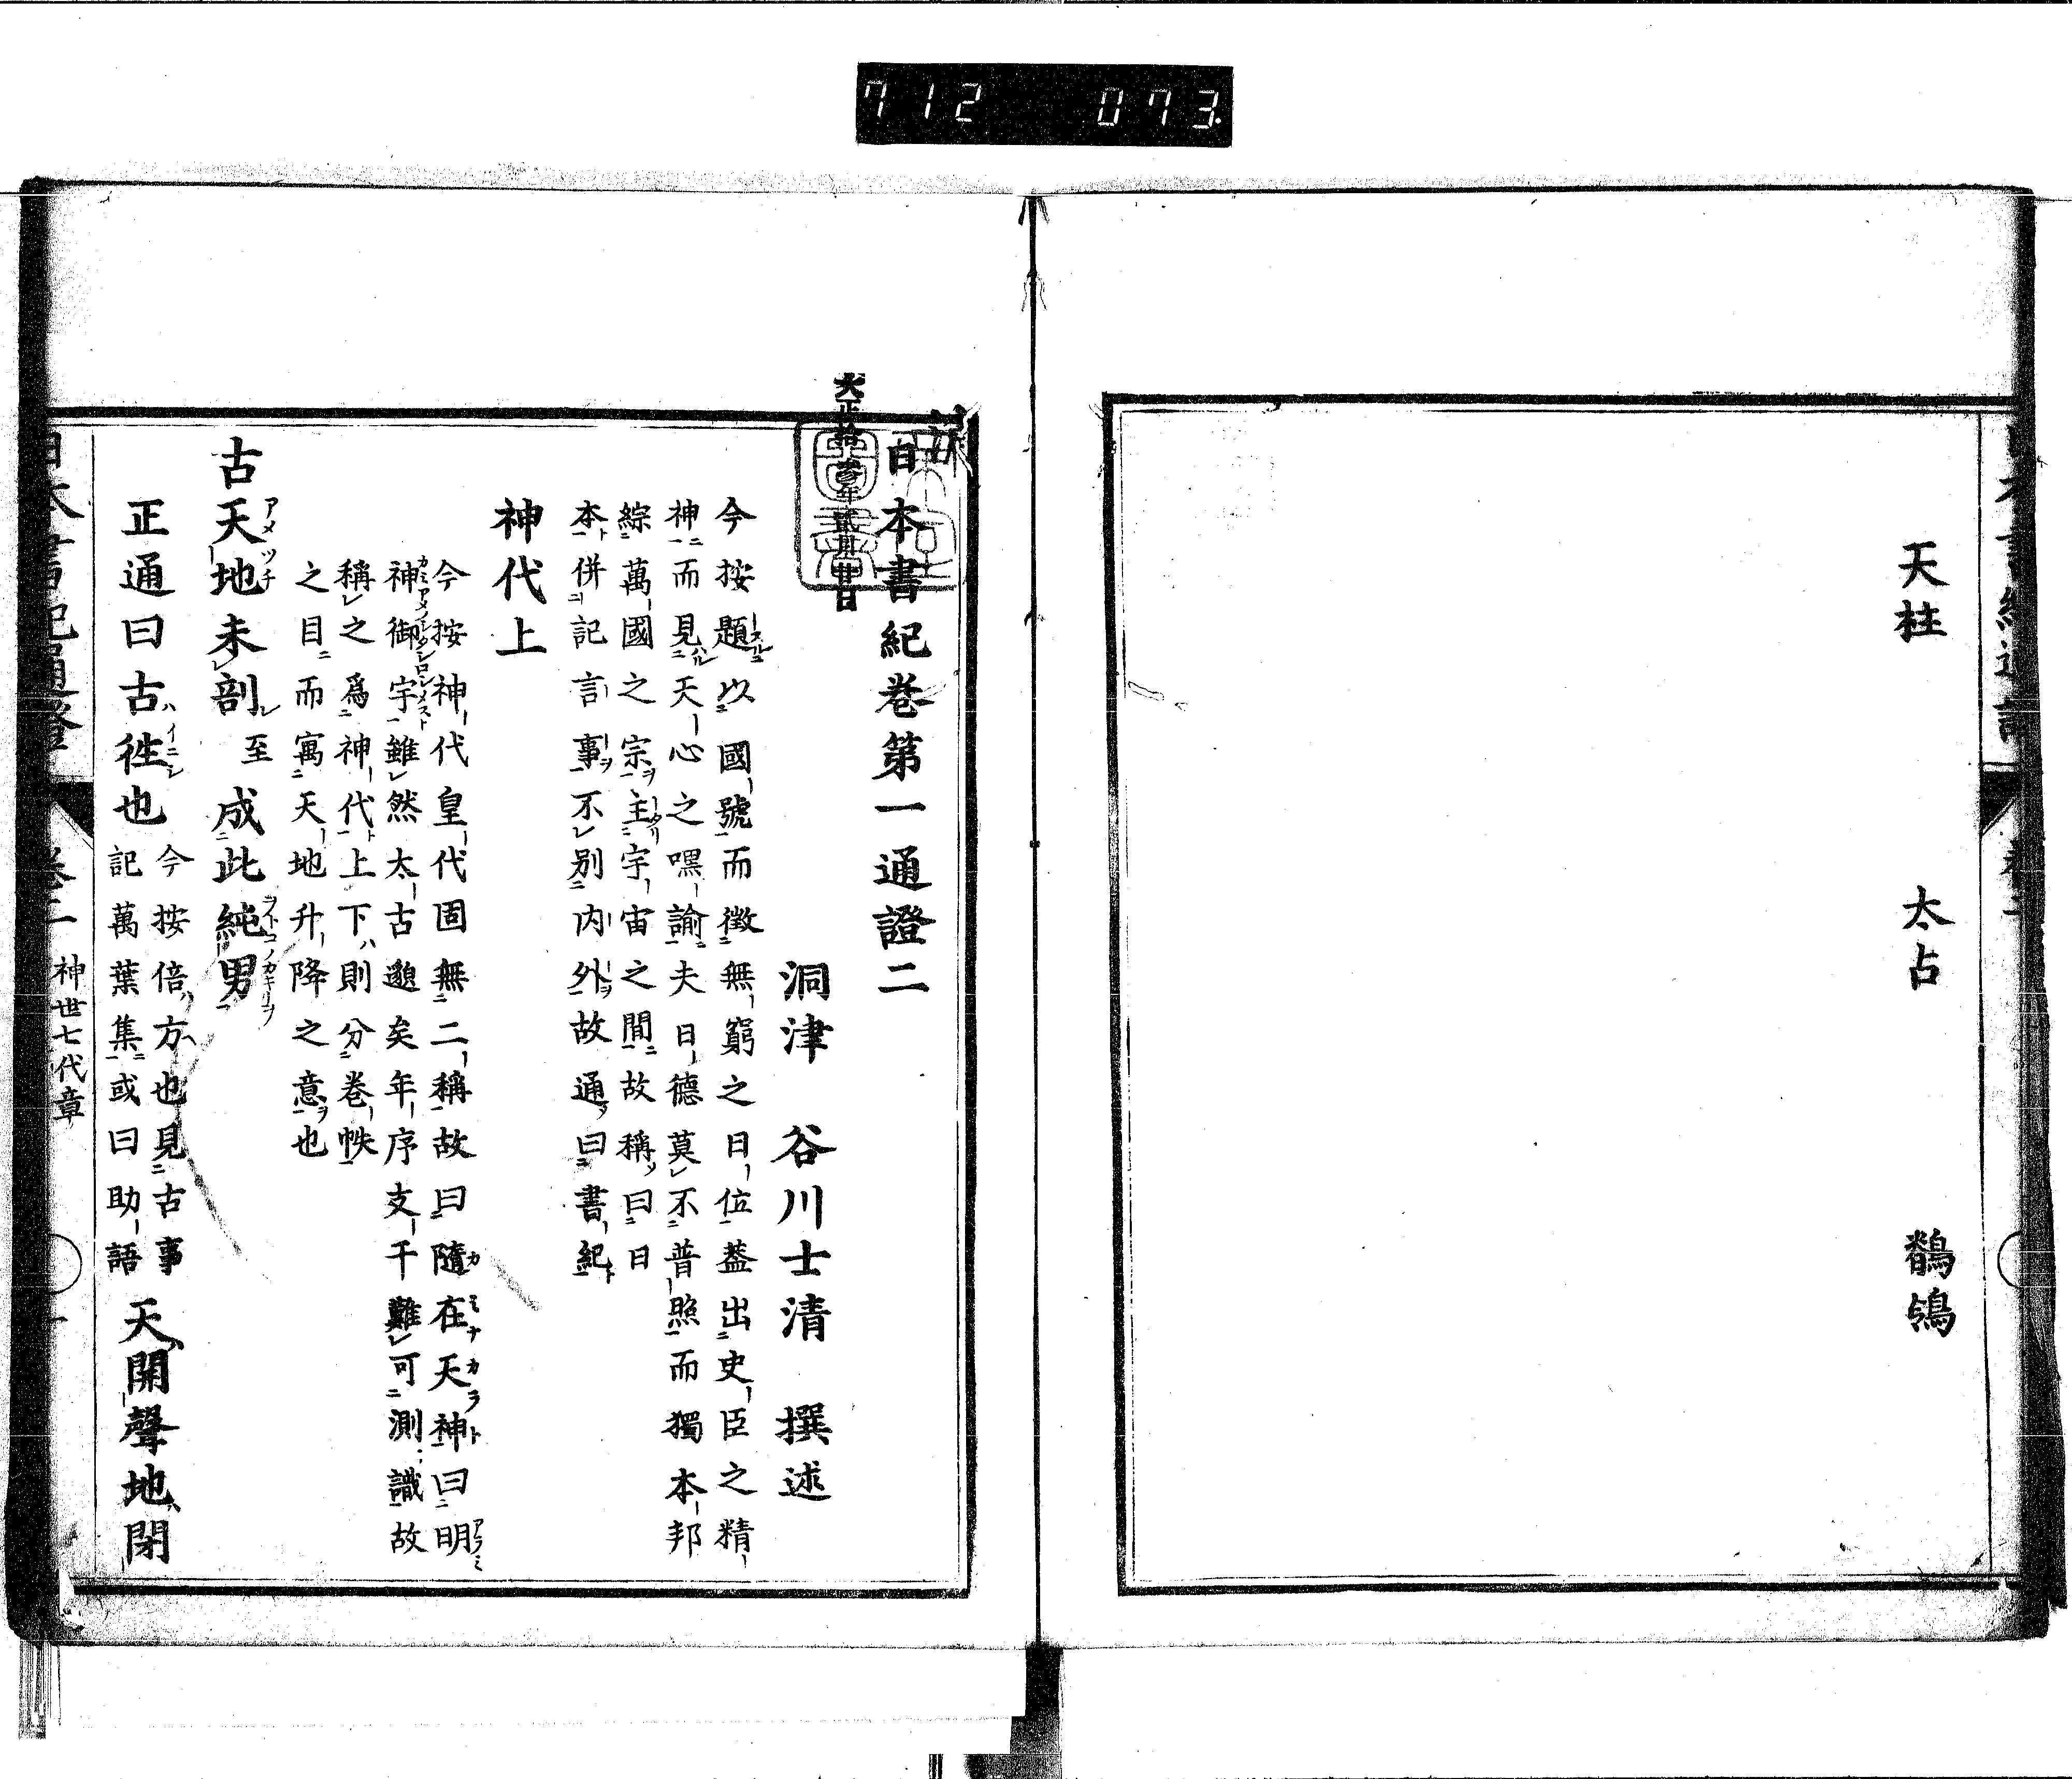 712 073.
天柱 太占 鶺鴒
大正拾參年貳月廿日
日本書紀卷第一通證二
洞津 谷川士清 撰述
今按題以國號而徵無窮之日位蓋出史臣之精
神而見天心之嘿諭夫日德莫不普照而獨本邦
綜萬國之宗主宇宙之間故稱曰日
本併記言事不別内外故通曰書紀
神代上
今按神代皇代固無二稱故曰隨在天神曰明
神御宇雖然太古邈矣年序支干難可測識故
稱之爲神代上下則分卷帙
之目而寓天地升降之意也
古天地未剖至成此純男
正通曰古徃也
今按倍方也見古事
記萬葉集或曰助語
天開聲地閉
日本書紀通證 卷二 神世七代章 一